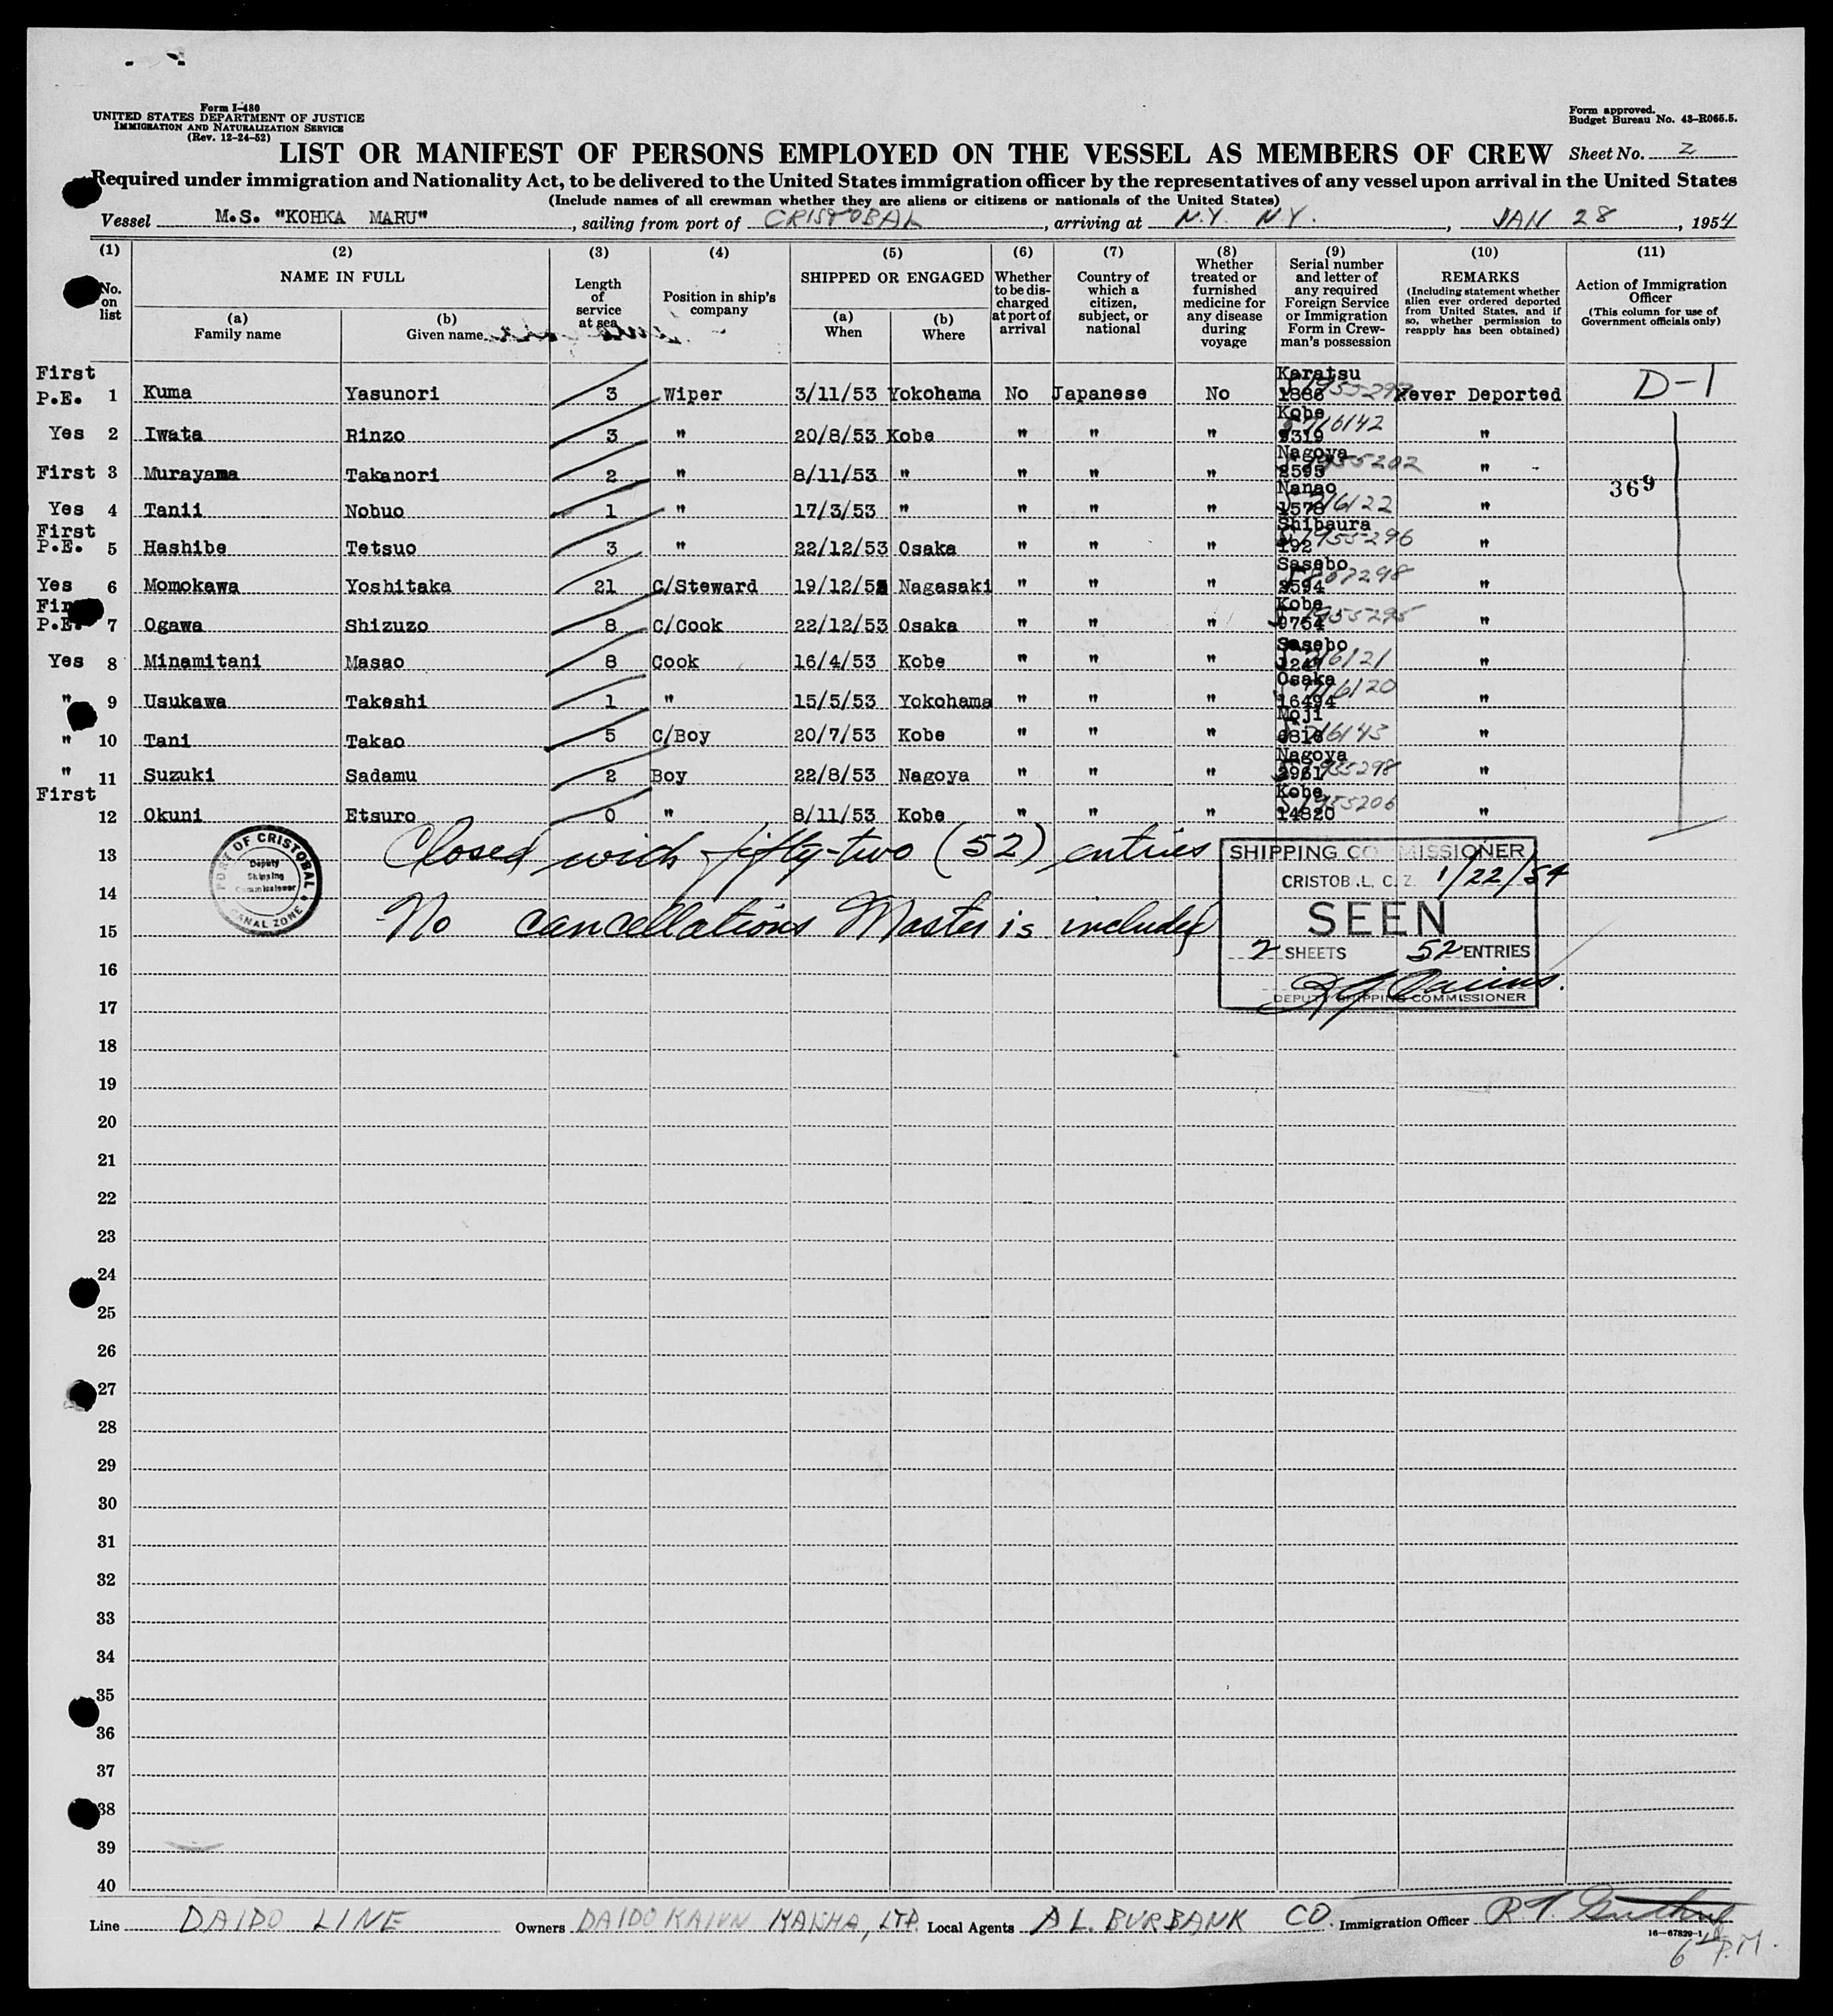 Form I-480
UNITED STATES DEPARTMENT OF JUSTICE
IMMIGRATION AND NATURALIZATION SERVICE
(Rev. 12-24-52)
Form approved.
Budget Bureau No. 43-R065.5.
LIST OR MANIFEST OF PERSONS EMPLOYED ON THE VESSEL AS MEMBERS OF CREW Sheet No. 2
Required under immigration and Nationality Act, to be delivered to the United States immigration officer by the representatives of any vessel upon arrival in the United States
(Include names of all crewman whether they are aliens or citizens or nationals of the United States)
Vessel M.S. "KOHKA MARU", sailing from port of CRISTOBAL, arriving at N.Y. N.Y., JAN 28, 1954
(1) (2) (3) (4) (5) (6) (7) (8) (9) (10) (11)
No. on list
NAME IN FULL
(a) Family name
(b) Given name
Length of service at sea
Position in ship's company
SHIPPED OR ENGAGED
(a) When
(b) Where
Whether to be discharged at port of arrival
Country of which a citizen, subject, or national
Whether treated or furnished medicine for any disease during voyage
Serial number and letter of any required Foreign Service or Immigration Form in Crewman's possession
REMARKS
(Including statement whether alien ever ordered deported from United States, and if so, whether permission to reapply has been obtained)
Action of Immigration Officer
(This column for use of Government officials only)
First P.E. 1 Kuma Yasunori 3 Wiper 3/11/53 Yokohama No Japanese No Karatsu Never Deported D-1
Yes 2 Iwata Rinzo 3 " 20/8/53 Kobe " " " Kobe "
First 3 Murayama Takanori 2 " 8/11/53 " " " " Nagoya " 369
Yes 4 Tanii Nobuo 1 " 17/3/53 " " " " Nanao "
First P.E. 5 Hashibe Tetsuo 3 " 22/12/53 Osaka " " " Shibaura 192 "
Yes 6 Momokawa Yoshitaka 21 C/Steward Nagasaki " " " Sasebo "
P.E. 7 Ogawa Shizuzo 8 C/Cook 22/12/53 Osaka " " " Kobe 9754 "
Yes 8 Minamitani Masao 8 Cook 16/4/53 Kobe " " " Sasebo "
" 9 Usukawa Takeshi 1 " 15/5/53 Yokohama " " " Osaka 16494 "
" 10 Tani Takao 5 C/Boy 20/7/53 Kobe " " " Moji "
" 11 Suzuki Sadamu 2 Boy 22/8/53 Nagoya " " " Nagoya "
First 12 Okuni Etsuro 0 " 8/11/53 Kobe " " " Kobe 14820 "
13
14
15
Closed with fifty-two (52) entries
No cancellations Master is included
PORT OF CRISTOBAL
Deputy Shipping Commissioner
CANAL ZONE
SHIPPING COMMISSIONER
CRISTOBAL, C. Z. 1/22/54
SEEN
2 SHEETS 52 ENTRIES
DEPUTY SHIPPING COMMISSIONER
16
17
18
19
20
21
22
23
24
25
26
27
28
29
30
31
32
33
34
35
36
37
38
39
40
Line DAIDO LINE Owners DAIDO KAIUN KAISHA, LTD. Local Agents A L. BURBANK CO. Immigration Officer
16-67829-1
P.M.